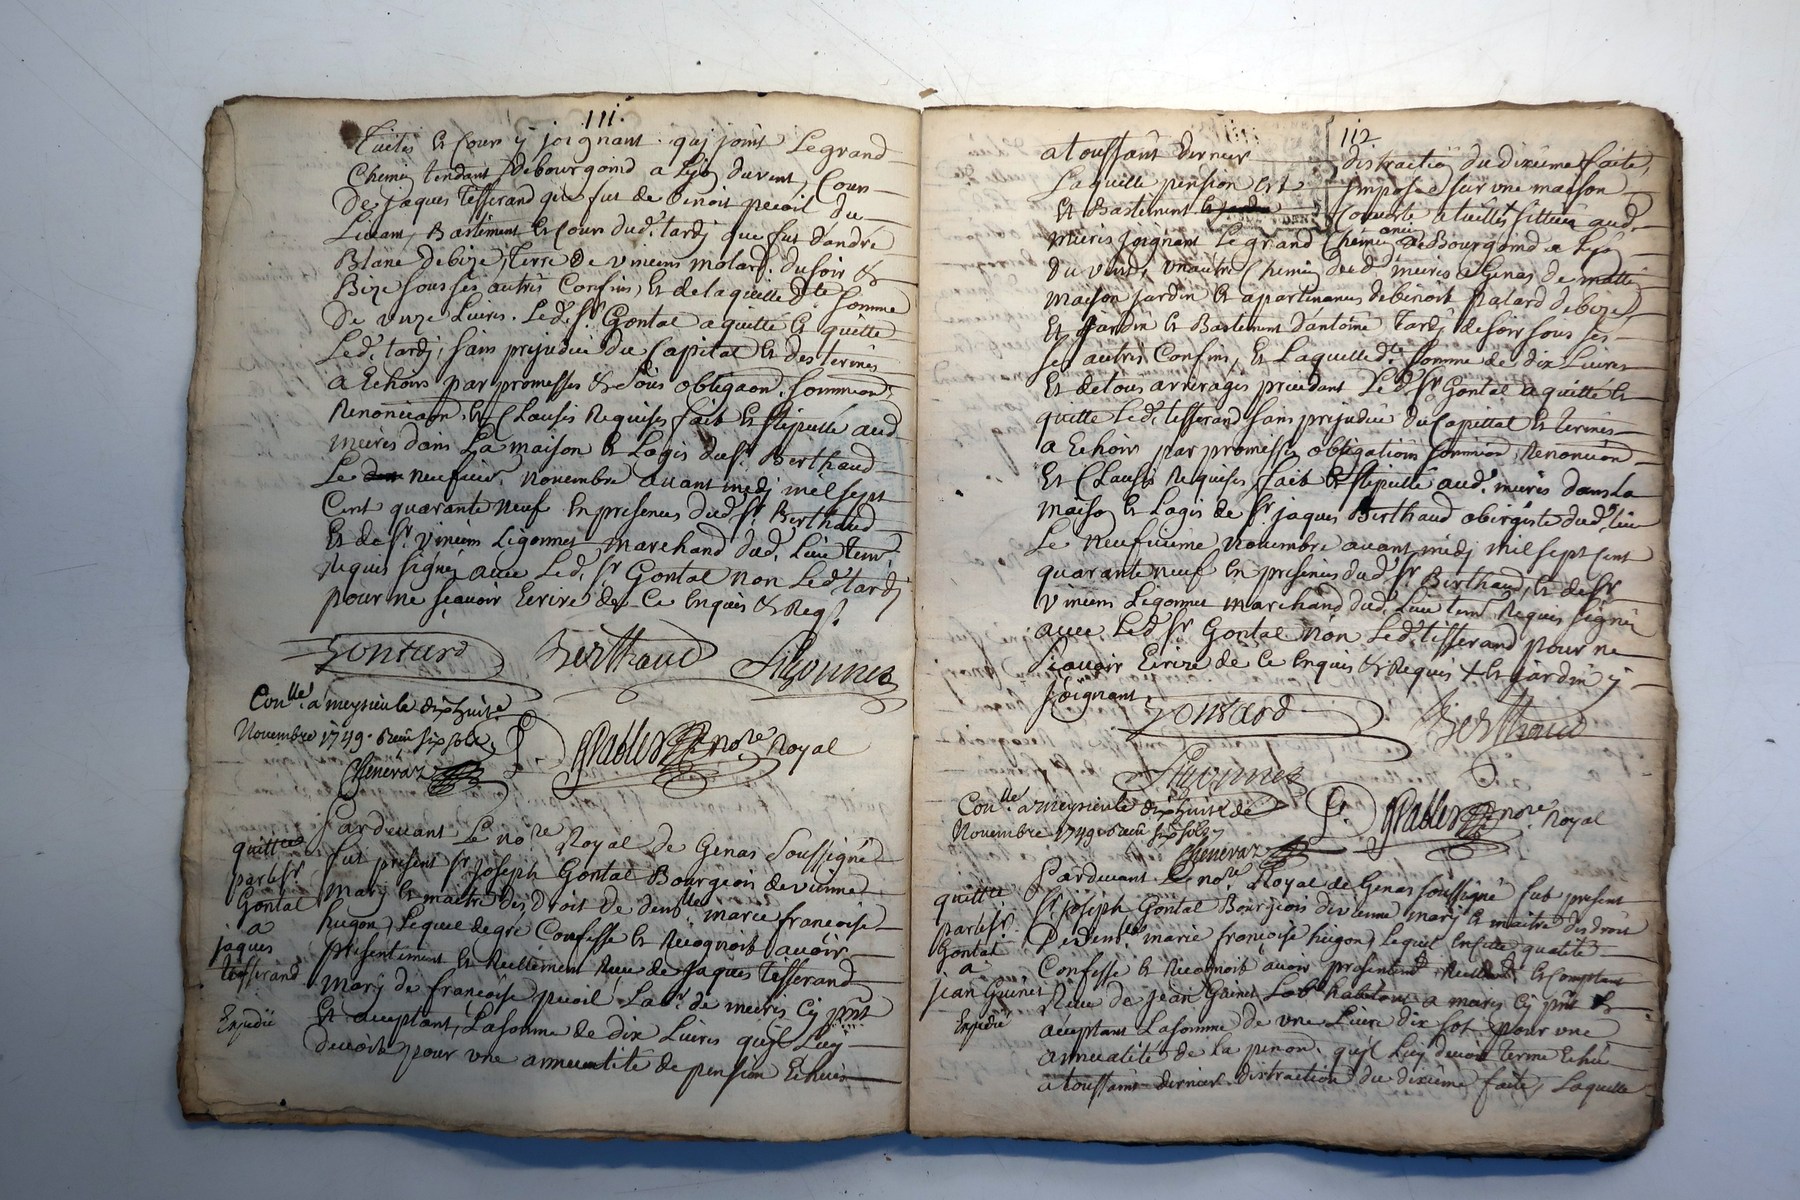 111.
Tuiles et Cour y joignant qui joint Le grand
Chemin tendant De bourgoind a Lyo du vent, Cour
De jaques Tesserand qui fut de benoit du
Livant, Bastiment Et Cour dud. tardj que fut d'andré
Blanc de bize, Terre de vincens molard. du soir &
Bize sous ses autres Confins, Et de laquelle d.te somme
De unze Livres. Led. Sr. Gontal a quitté Et quitte
Led. tardj, sans prejudice du Capital Et des termes
a Echoir par promesses obligaon. sommion
Renonciaon. Et Clauses Requises fait Et stipullé aud.
meiris dans La maison Et Logis du Sr. Berthaud
Le neufvie. Novembre avant midj mil sept
Cent quarante neuf En presences dud. Sr. Berthaud
Et de Sr. vincens Ligonnet marchand dud. Lieu tem.
Requis signés avec Led. Sr. Gontal non Led. tardj
pour ne sçavoir Ecrire de Ce Enquis & Req.
Gontard Berthaud Ligonnet
Con.lle a meysieu le dix huit
Novembre 1749. six sols
Cheneraz
Pables no.re Royal
quittce
par le Sr.
Gontal
a
jaques
tesserand
Expedié
Pardevant Le no.re Royal de Genas Soussigné
fut present Sr. Joseph Gontal Bourgeois de vienne
mary Et maitre des Droit De dem.lle marie francoise
hugon, Lequel de gré Confesse Et Recognoit avoir
presentement Et Reellement Receu de Jaques Tesserand
mary de francoise Lab.r de meiris Cy pnt
Et acceptant, La somme de dix Livres qu'il Luy
devoit pour une annuatité de pension Echeue
112
a toussaint dernier distraction du dixieme faite,
Laquelle pension Est imposée sur une maison
Et Bastiment Couverte a tuilles + sittuée aud.
meiris joignant Le grand Chemin De Bourgoind a Lyo
du vend, un autre Chemin dud. meiris a Genas de matt
maison jardin Et apartenances de benoit palard de bize
Et jardin Et Bastiment d'antoine Tardj de soir sous ses
ses autres Confins, Et Laquelle d.te somme de dix Livres
Et de tous arrerages precedant Led. Sr. Gontal a quitté Et
quitte Led. tesserand sans prejudice du Capittal Et termes
a Echoir par promesses obligations sommion, Renoncion
Et Clauses Requises, fait Et stipullé aud. meiris dans La
maiso Et Logis de Sr. jaques Berthaud obergiste dud. lieu
Le neufvieme Novembre avant midj mil sept Cent
quarante neuf En presences dud. Sr. Berthaud, Et de Sr.
vincens Ligonnet marchand dud. Lieu tem. Requis signés
avec Led. Sr. Gontal non Led. tisserand pour ne
scavoir Ecrire de Ce Enquis & Requis + Et jardin y
joignant
Gontard Berthaud
Ligonnet
Con.lle a meysieu le dix huit de
Novembre 1749 six sols
Cheneraz
Pables no.re Royal
quittce
par le Sr.
Gontal
a
jean Guinet
Expedié
Pardevant Le no.re Royal de Genas soussigné fut present
Sr. Joseph Gontal Bourgeois de vienne mary Et maitre des droit
De dem.lle marie françoise hugon, Lequel En cette qualité
Confesse Et Recognoit avoir presentem.t Reellem.t Et Comptant
Receu de jean Guinet Lab. habitant a meiris Cy pnt Et
acceptant La somme de une Livre dix sol pour une
annualité de la pencon qu'il Luy devoit terme Echeu
a toussaint dernier distraction du dixieme faite, Laquelle